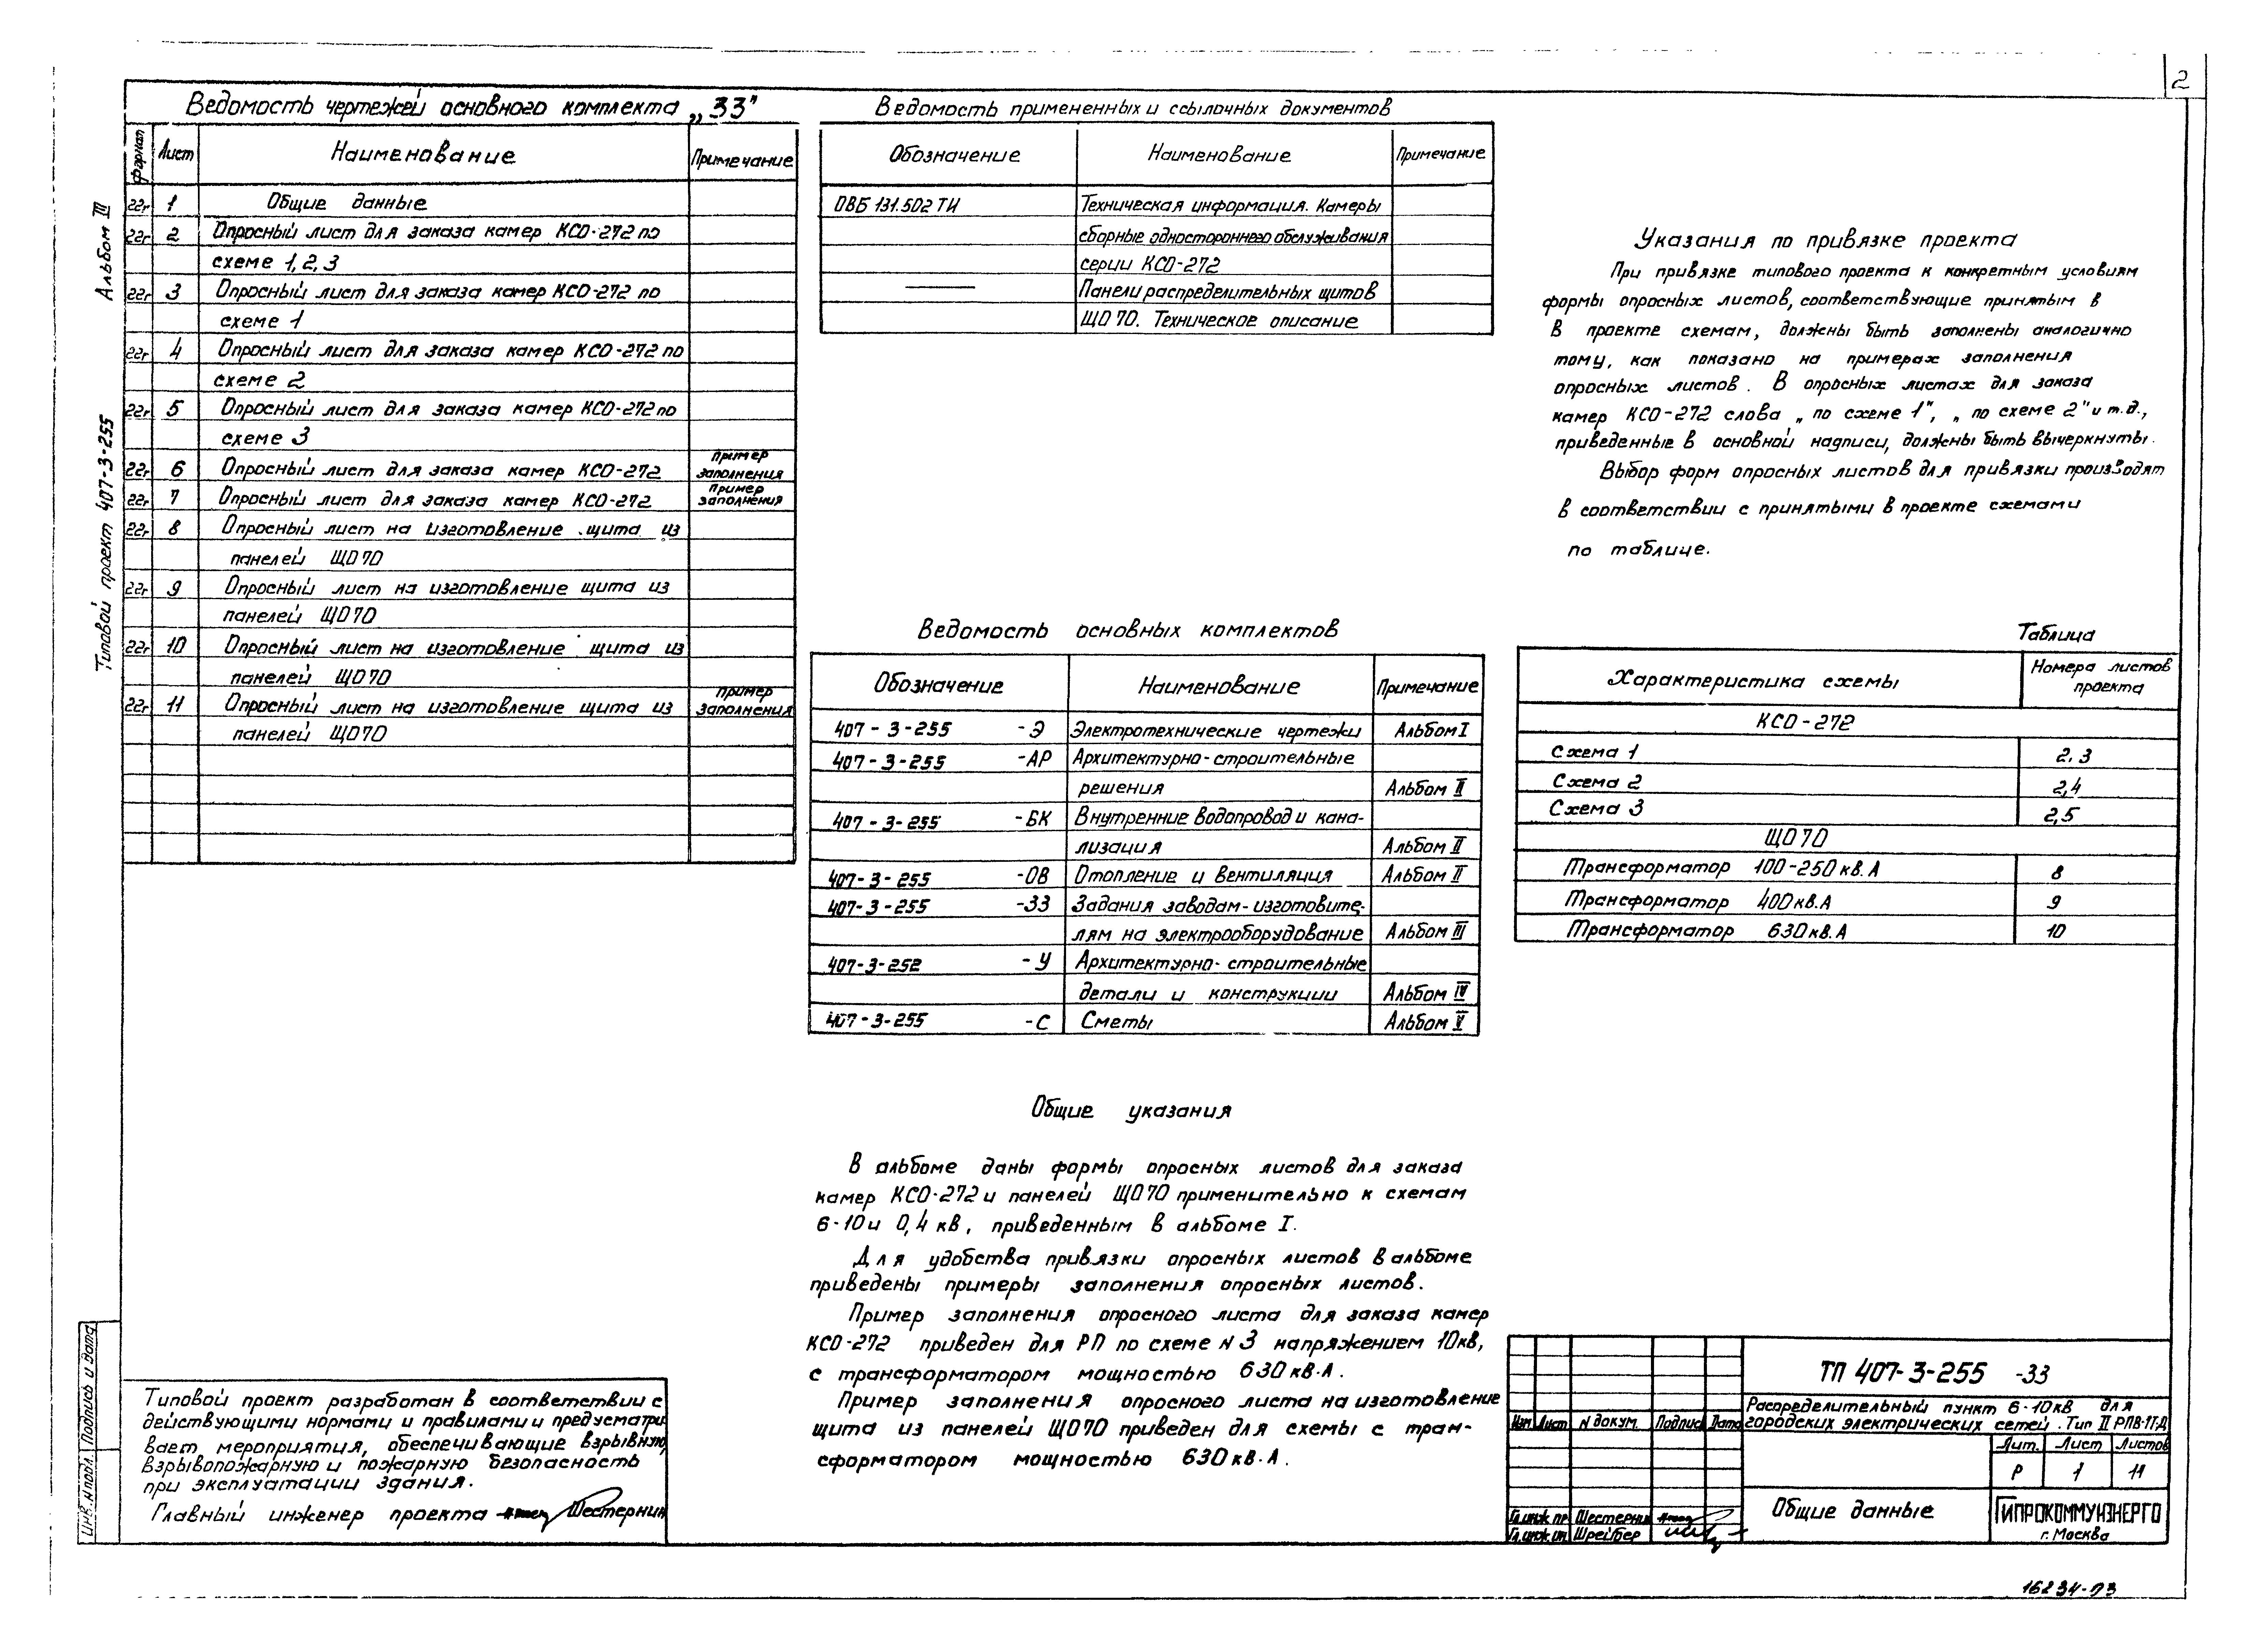 2
Альбом III
Типовой проект 407-3-255
Ведомость чертежей основного комплекта „ЗЗ"
Формат Лист Наименование Примечание
22г 1 Общие данные
22г 2 Опросный лист для заказа камер КСО-272 по
схеме 1, 2, 3
22г 3 Опросный лист для заказа камер КСО-272 по
схеме 1
22г 4 Опросный лист для заказа камер КСО-272 по
схеме 2
22г 5 Опросный лист для заказа камер КСО-272 по
схеме 3
22г 6 Опросный лист для заказа камер КСО-272 Пример заполнения
22г 7 Опросный лист для заказа камер КСО-272 Пример заполнения
22г 8 Опросный лист на изготовление щита из
панелей ЩО70
22г 9 Опросный лист на изготовление щита из
панелей ЩО70
22г 10 Опросный лист на изготовление щита из
панелей ЩО70
22г 11 Опросный лист на изготовление щита из Пример заполнения
панелей ЩО70
Ведомость примененных и ссылочных документов
Обозначение Наименование Примечание
ОВБ 131.502 ТИ Техническая информация. Камеры
сборные одностороннего обслуживания
серии КСО-272
Панели распределительных щитов
ЩО 70. Техническое описание
Ведомость основных комплектов
Обозначение Наименование Примечание
407-3-255 -Э Электротехнические чертежи Альбом I
407-3-255 -АР Архитектурно-строительные
решения Альбом II
407-3-255 -БК Внутренние водопровод и кана-
лизация Альбом II
407-3-255 -ОВ Отопление и вентиляция Альбом II
407-3-255 -ЗЗ Задания заводам-изготовите-
лям на электрооборудование Альбом III
407-3-252 -У Архитектурно-строительные
детали и конструкции Альбом IV
407-3-255 -С Сметы Альбом V
Общие указания
В альбоме даны формы опросных листов для заказа
камер КСО-272 и панелей ЩО70 применительно к схемам
6-10 и 0,4 кв, приведенным в альбоме I.
Для удобства привязки опросных листов в альбоме
приведены примеры заполнения опросных листов.
Пример заполнения опросного листа для заказа камер
КСО-272 приведен для РП по схеме N 3 напряжением 10кв,
с трансформатором мощностью 630 кв.А.
Пример заполнения опросного листа на изготовление
щита из панелей ЩО70 приведен для схемы с тран-
сформатором мощностью 630 кв.А.
Указания по привязке проекта
При привязке типового проекта к конкретным условиям
формы опросных листов, соответствующие принятым в
в проекте схемам, должны быть заполнены аналогично
тому, как показано на примерах заполнения
опросных листов. В опросных листах для заказа
камер КСО-272 слова „по схеме 1", „по схеме 2" и т.д.,
приведенные в основной надписи, должны быть вычеркнуты.
Выбор форм опросных листов для привязки производят
в соответствии с принятыми в проекте схемами
по таблице.
Таблица
Характеристика схемы Номера листов проекта
КСО-272
Схема 1 2.3
Схема 2 2,4
Схема 3 2,5
ЩО70
Трансформатор 100-250 кв.А 8
Трансформатор 400 кв.А 9
Трансформатор 630 кв.А 10
Типовой проект разработан в соответствии с
действующими нормами и правилами и предусматри
вает мероприятия, обеспечивающие взрывную,
взрывопожарную и пожарную безопасность
при эксплуатации здания.
Главный инженер проекта Шестернин
Инв. N подл. Подпись и дата
ТП 407-3-255 -ЗЗ
Распределительный пункт 6-10кв для
городских электрических сетей. Тип II РПВ-1Т-Д
Изм Лист N докум. Подпись Дата
Лит. Лист Листов
Р 1 11
Общие данные
Гл.инж.пр Шестернин
Гл.инж.оп Шрейбер
ГИПРОКОММУНЭНЕРГО
г. Москва
16234-03